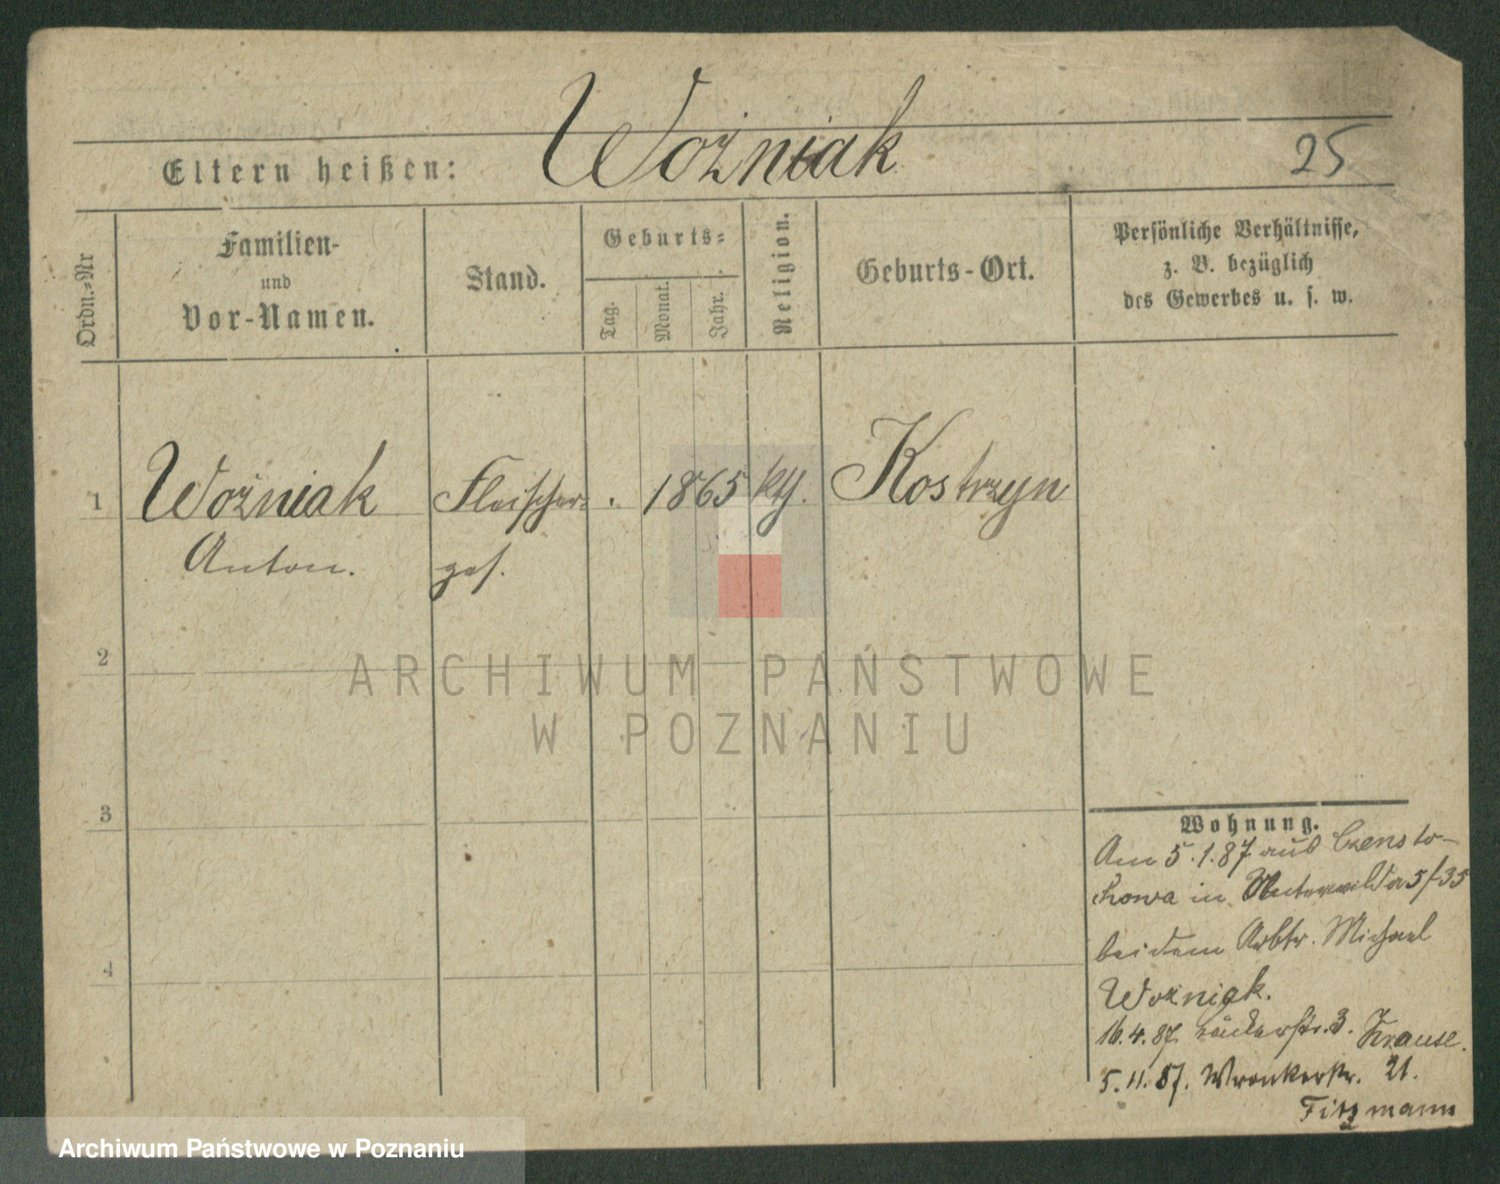 Woźniak
Eltern heißen:
25
Ordn.-Nr
Familien-
und
Vor-Namen.
Stand.
Geburts-
Tag.
Monat.
Jahr.
Religion.
Geburts-Ort.
Persönliche Verhältnisse,
z. B. bezüglich
des Gewerbes u. s. w.
1 Woźniak Fleischer- . 1865 kth. Kostrzyn
Anton. ges.
2
ARCHIWUM PAŃSTWOWE
W POZNANIU
3
4
Wohnung.
Am 5.1.87 aus Czensto-
chowa in Unterwilda 5/35
bei dem Arbtr. Michael
Woźniak.
16.4.87. Bäckerstr. 3. Krause.
5.11.87. Wronkerstr. 21.
Fitzmann
Archiwum Państwowe w Poznaniu